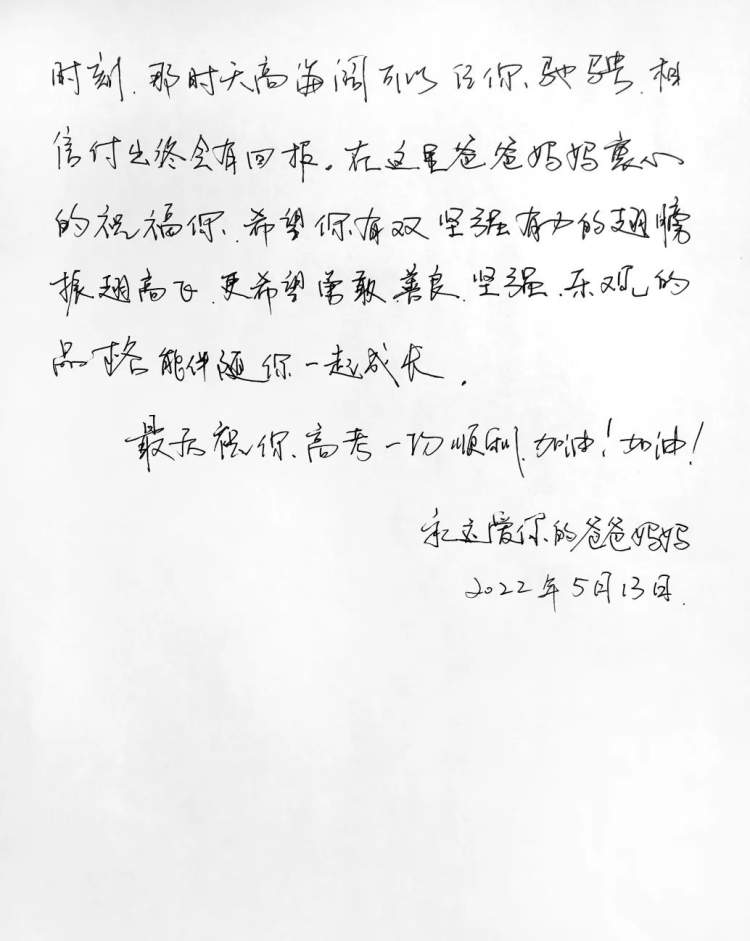 时刻，那时天高海阔可以任你驰骋，相
信付出终会有回报。在这里爸爸妈妈衷心
的祝福你，希望你有双坚强有力的翅膀
振翅高飞，更希望勇敢、善良、坚强、乐观的
品格能伴随你一起成长。
最后祝你高考一切顺利，加油！加油！
永远爱你的爸爸妈妈
2022年5月13日.